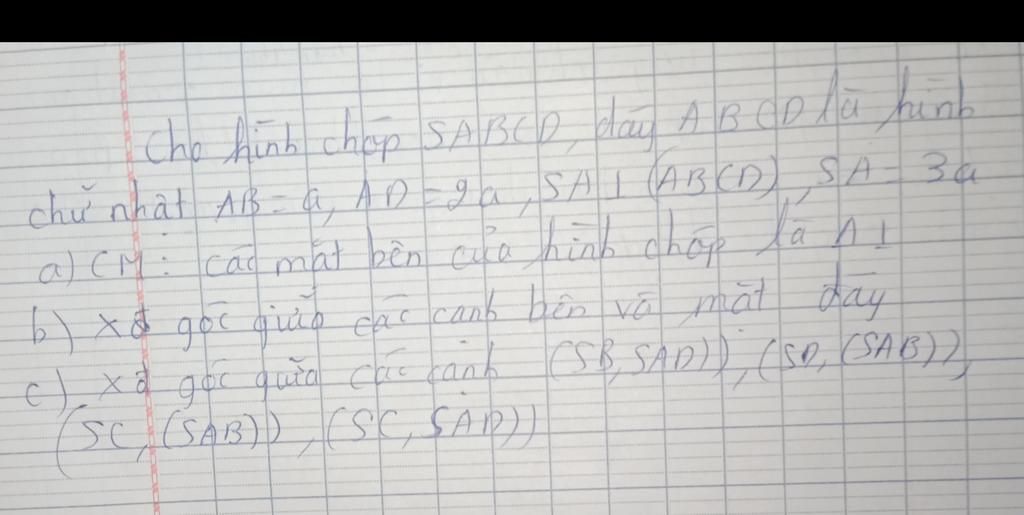 Cho hình chóp SABCD, đáy ABCD là hình
chữ nhật AB = a, AD = 2a, SA ⊥ (ABCD), SA = 3a
a) CM: các mặt bên của hình chóp là Δ⊥
b) xđ góc giữa các cạnh bên và mặt đáy
c) xđ góc giữa các cạnh (SB, SAD)), (SD, (SAB)),
(SC, (SAB)), (SC, SAD))